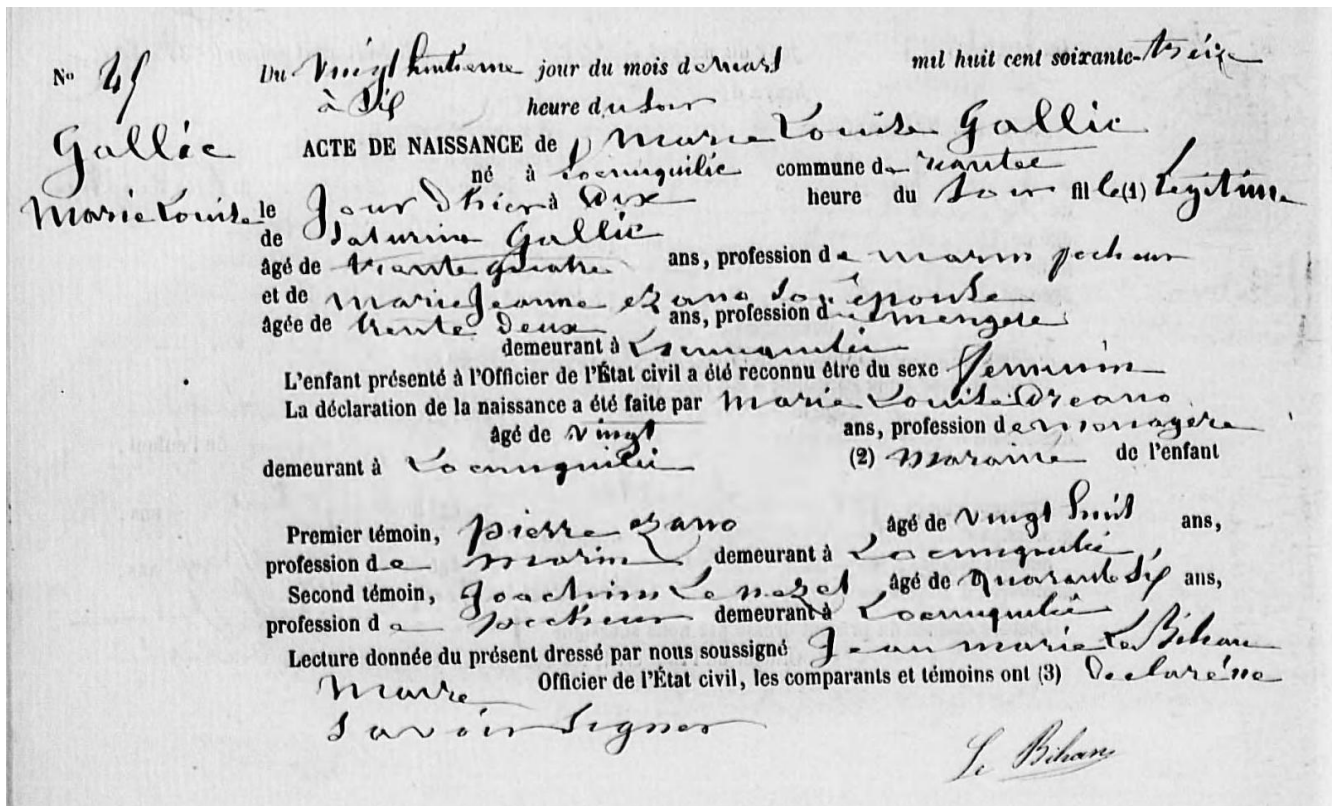 No 45 Du Vingt huitieme jour du mois de Mars mil huit cent soixante-treize
à Six heure du soir
Gallic ACTE DE NAISSANCE de Marie Louise Gallic
né à Locmiquélic commune de
Marie Louise le Jour d'hier à Six heure du Soir fille (1) Legitime
de Saturnin Gallic
âgé de trante quatre ans, profession de marin pecheur
et de Marie Jeanne Ezano Son épouse
âgée de trente deux ans, profession de menagere
demeurant à Locmiquelic
L'enfant présenté à l'Officier de l'État civil a été reconnu être du sexe feminin
La déclaration de la naissance a été faite par Marie Louise Dreano
âgé de vingt ans, profession de menagere
demeurant à Locmiquelic (2) Maraine de l'enfant
Premier témoin, Pierre Ezano âgé de vingt huit ans,
profession de marin demeurant à Locmiquelic,
Second témoin, Joachim Le nezet âgé de quarante Six ans,
profession de demeurant à Locmiquelic
Lecture donnée du présent dressé par nous soussigné Jean Marie Le Bihan
Maire Officier de l'État civil, les comparants et témoins ont (3) Declaré ne
Savoir Signer
Le Bihan